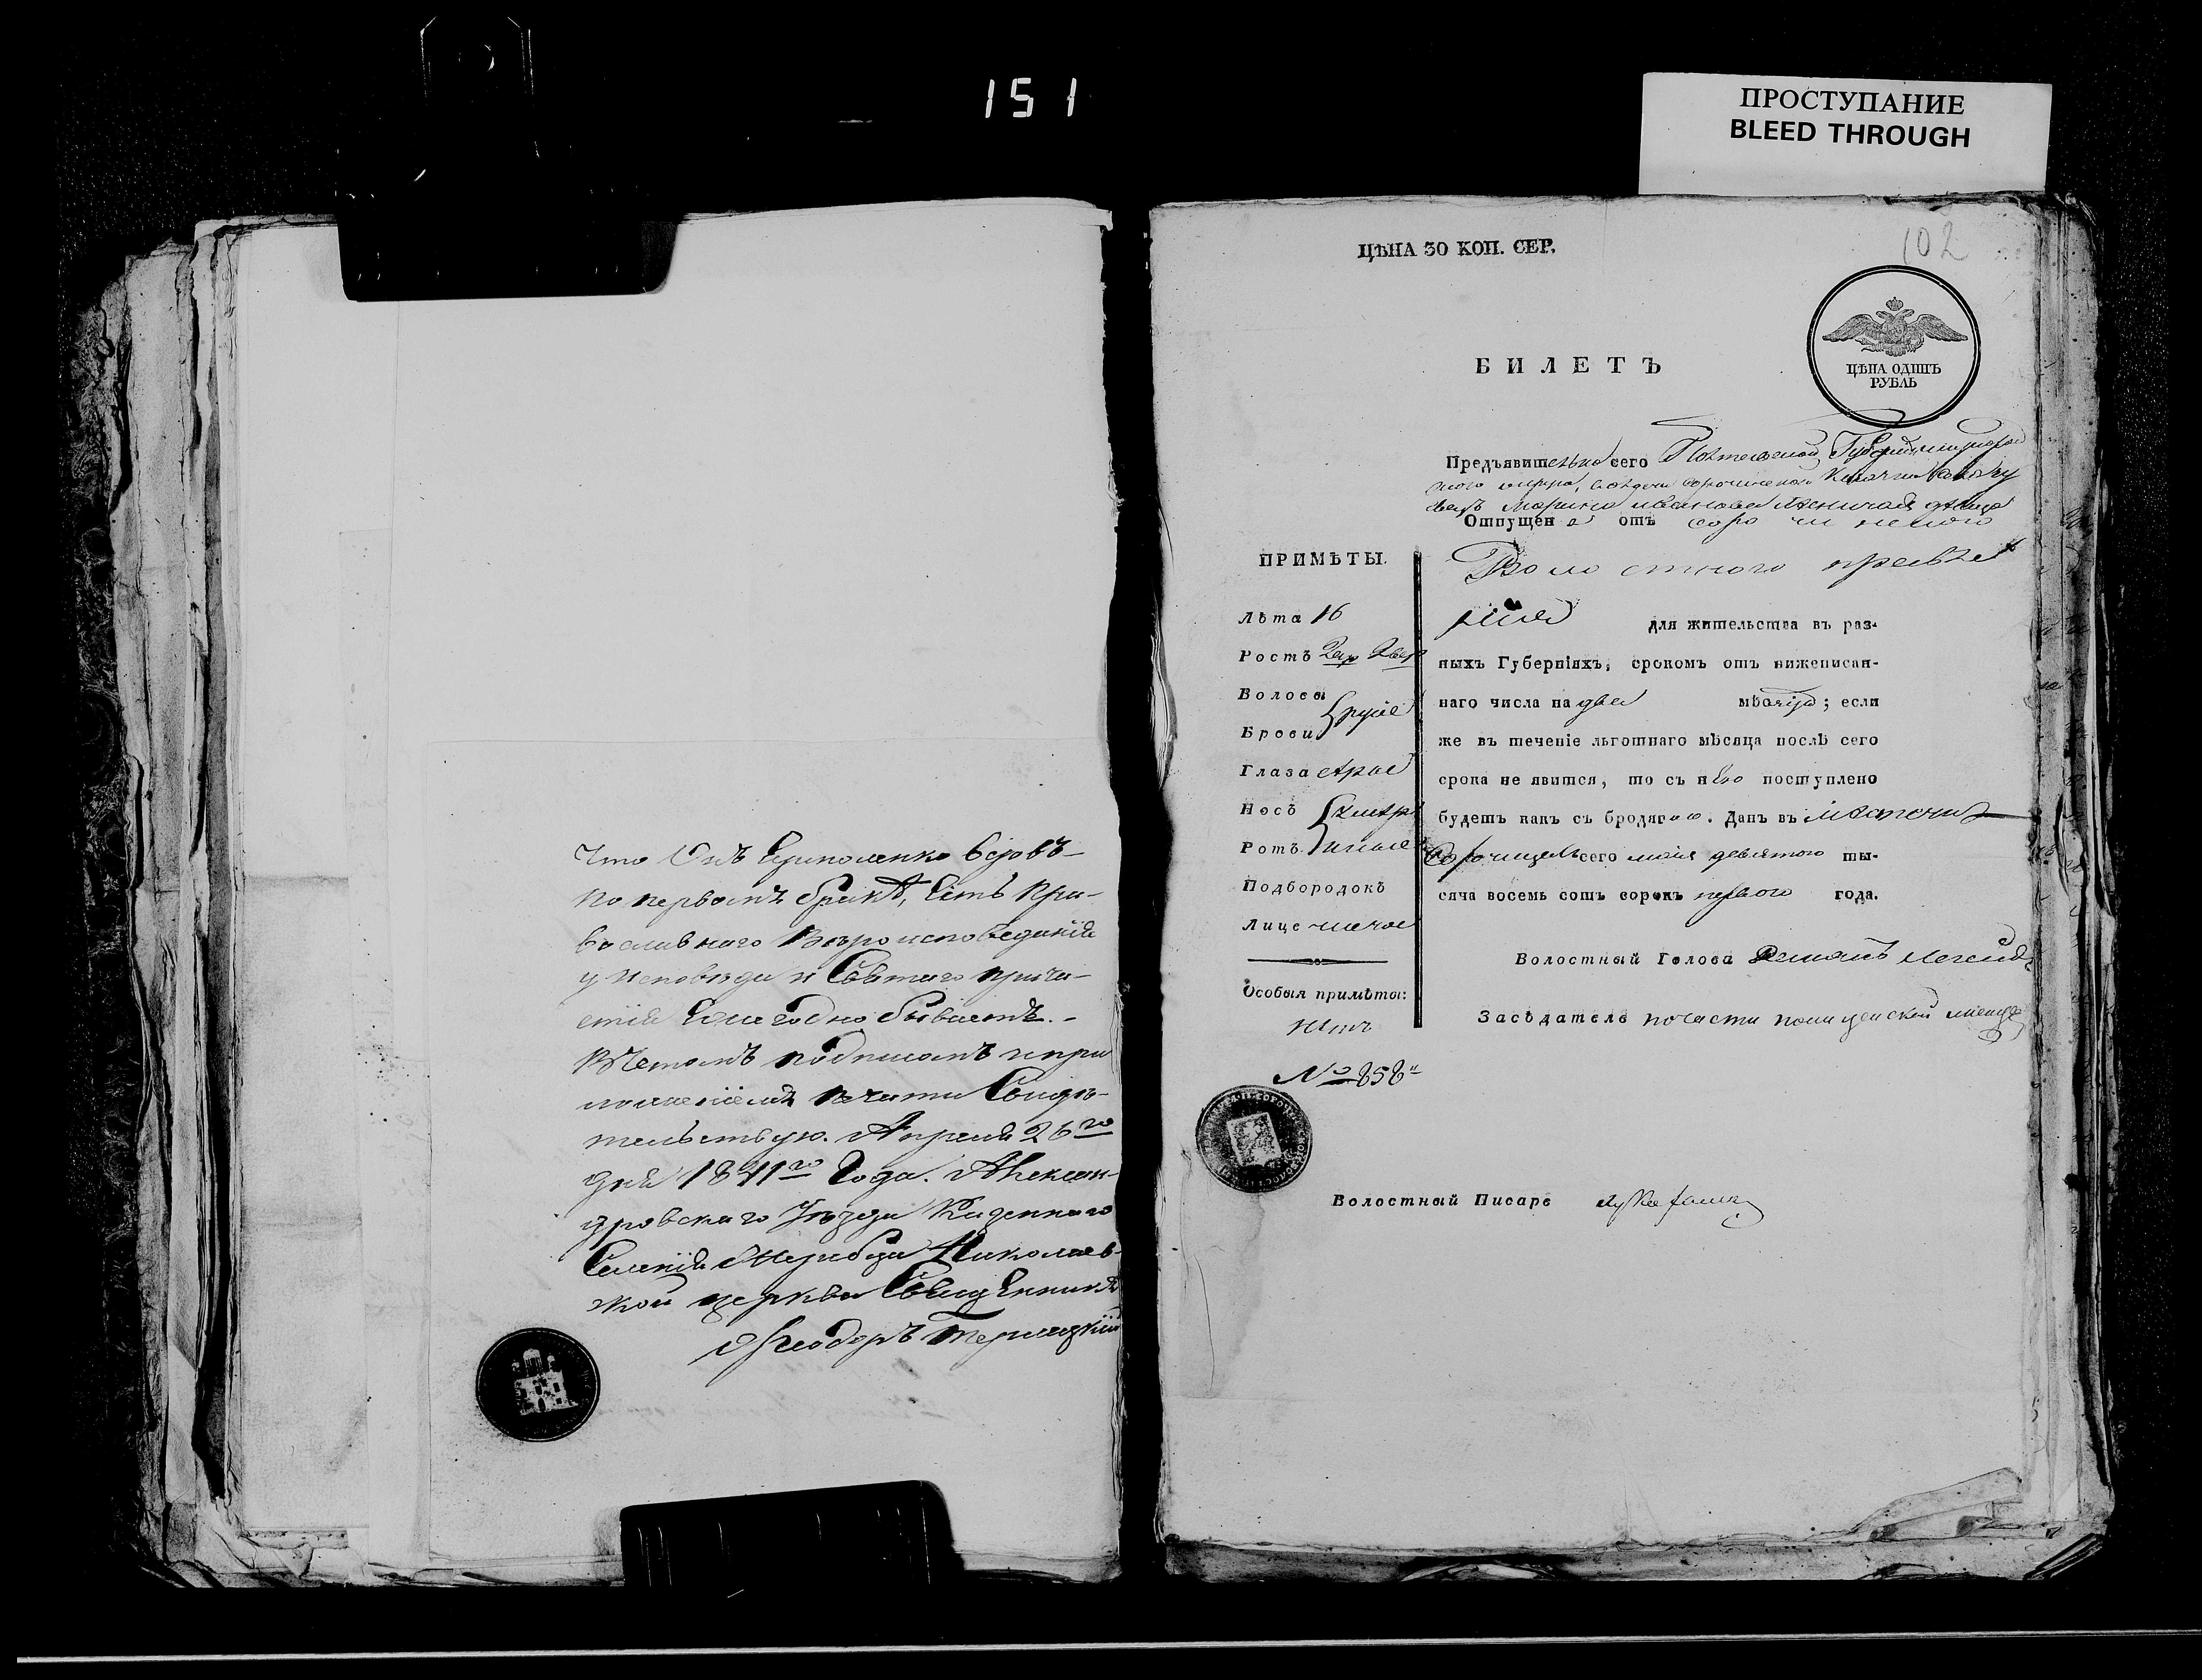 151
ПРОСТУПАНИЕ
BLEED THROUGH
что Онъ Ермоленко вдовъ
по первомъ бракѣ, Есть пра-
вославнаго Вѣроисповеданія
у исповѣди и Святаго прича-
стія Ежегодно бываетъ.-
Вчемъ подписомъ и при
ложеніемъ печати Свидѣ-
тельствую. Апреля 26го
дня 1841го Года. Алексан-
дровскаго Уѣзда Казеннаго
Селенія Николаев-
ской церкви Священникъ
Феодоръ
102
ЦѢНА 30 КОП. СЕР.
ЦѢНА ОДИНЪ
РУБЛЬ
БИЛЕТЪ
Предъявительница сего Полтавской Губерніи
Марина Иванова девица
Отпущена отъ Сорочинского
Волостного правле
нія для жительства въ раз-
ныхъ Губерніяхъ, срокомъ отъ нижеписан-
наго числа на два мѣсяца; если
же въ теченіе льготнаго мѣсяца послѣ сего
срока не явится, то съ нею поступлено
будетъ какъ съ бродягою. Данъ въ местечке
Сорочинцахъ сего мая девятого ты-
сяча восемь сотъ сорокъ первого года.
ПРИМѢТЫ.
Лѣта 16
Ростъ 2 ар 2 вер
Волосы
Брови русие
Глаза серые
Носъ
Ротъ умерение
Подбородокъ
Лице чистое
Особыя примѣты:
нетъ
№ 858
Волостный Голова Демянъ
Засѣдатель по части полицейской
Волостный Писарь